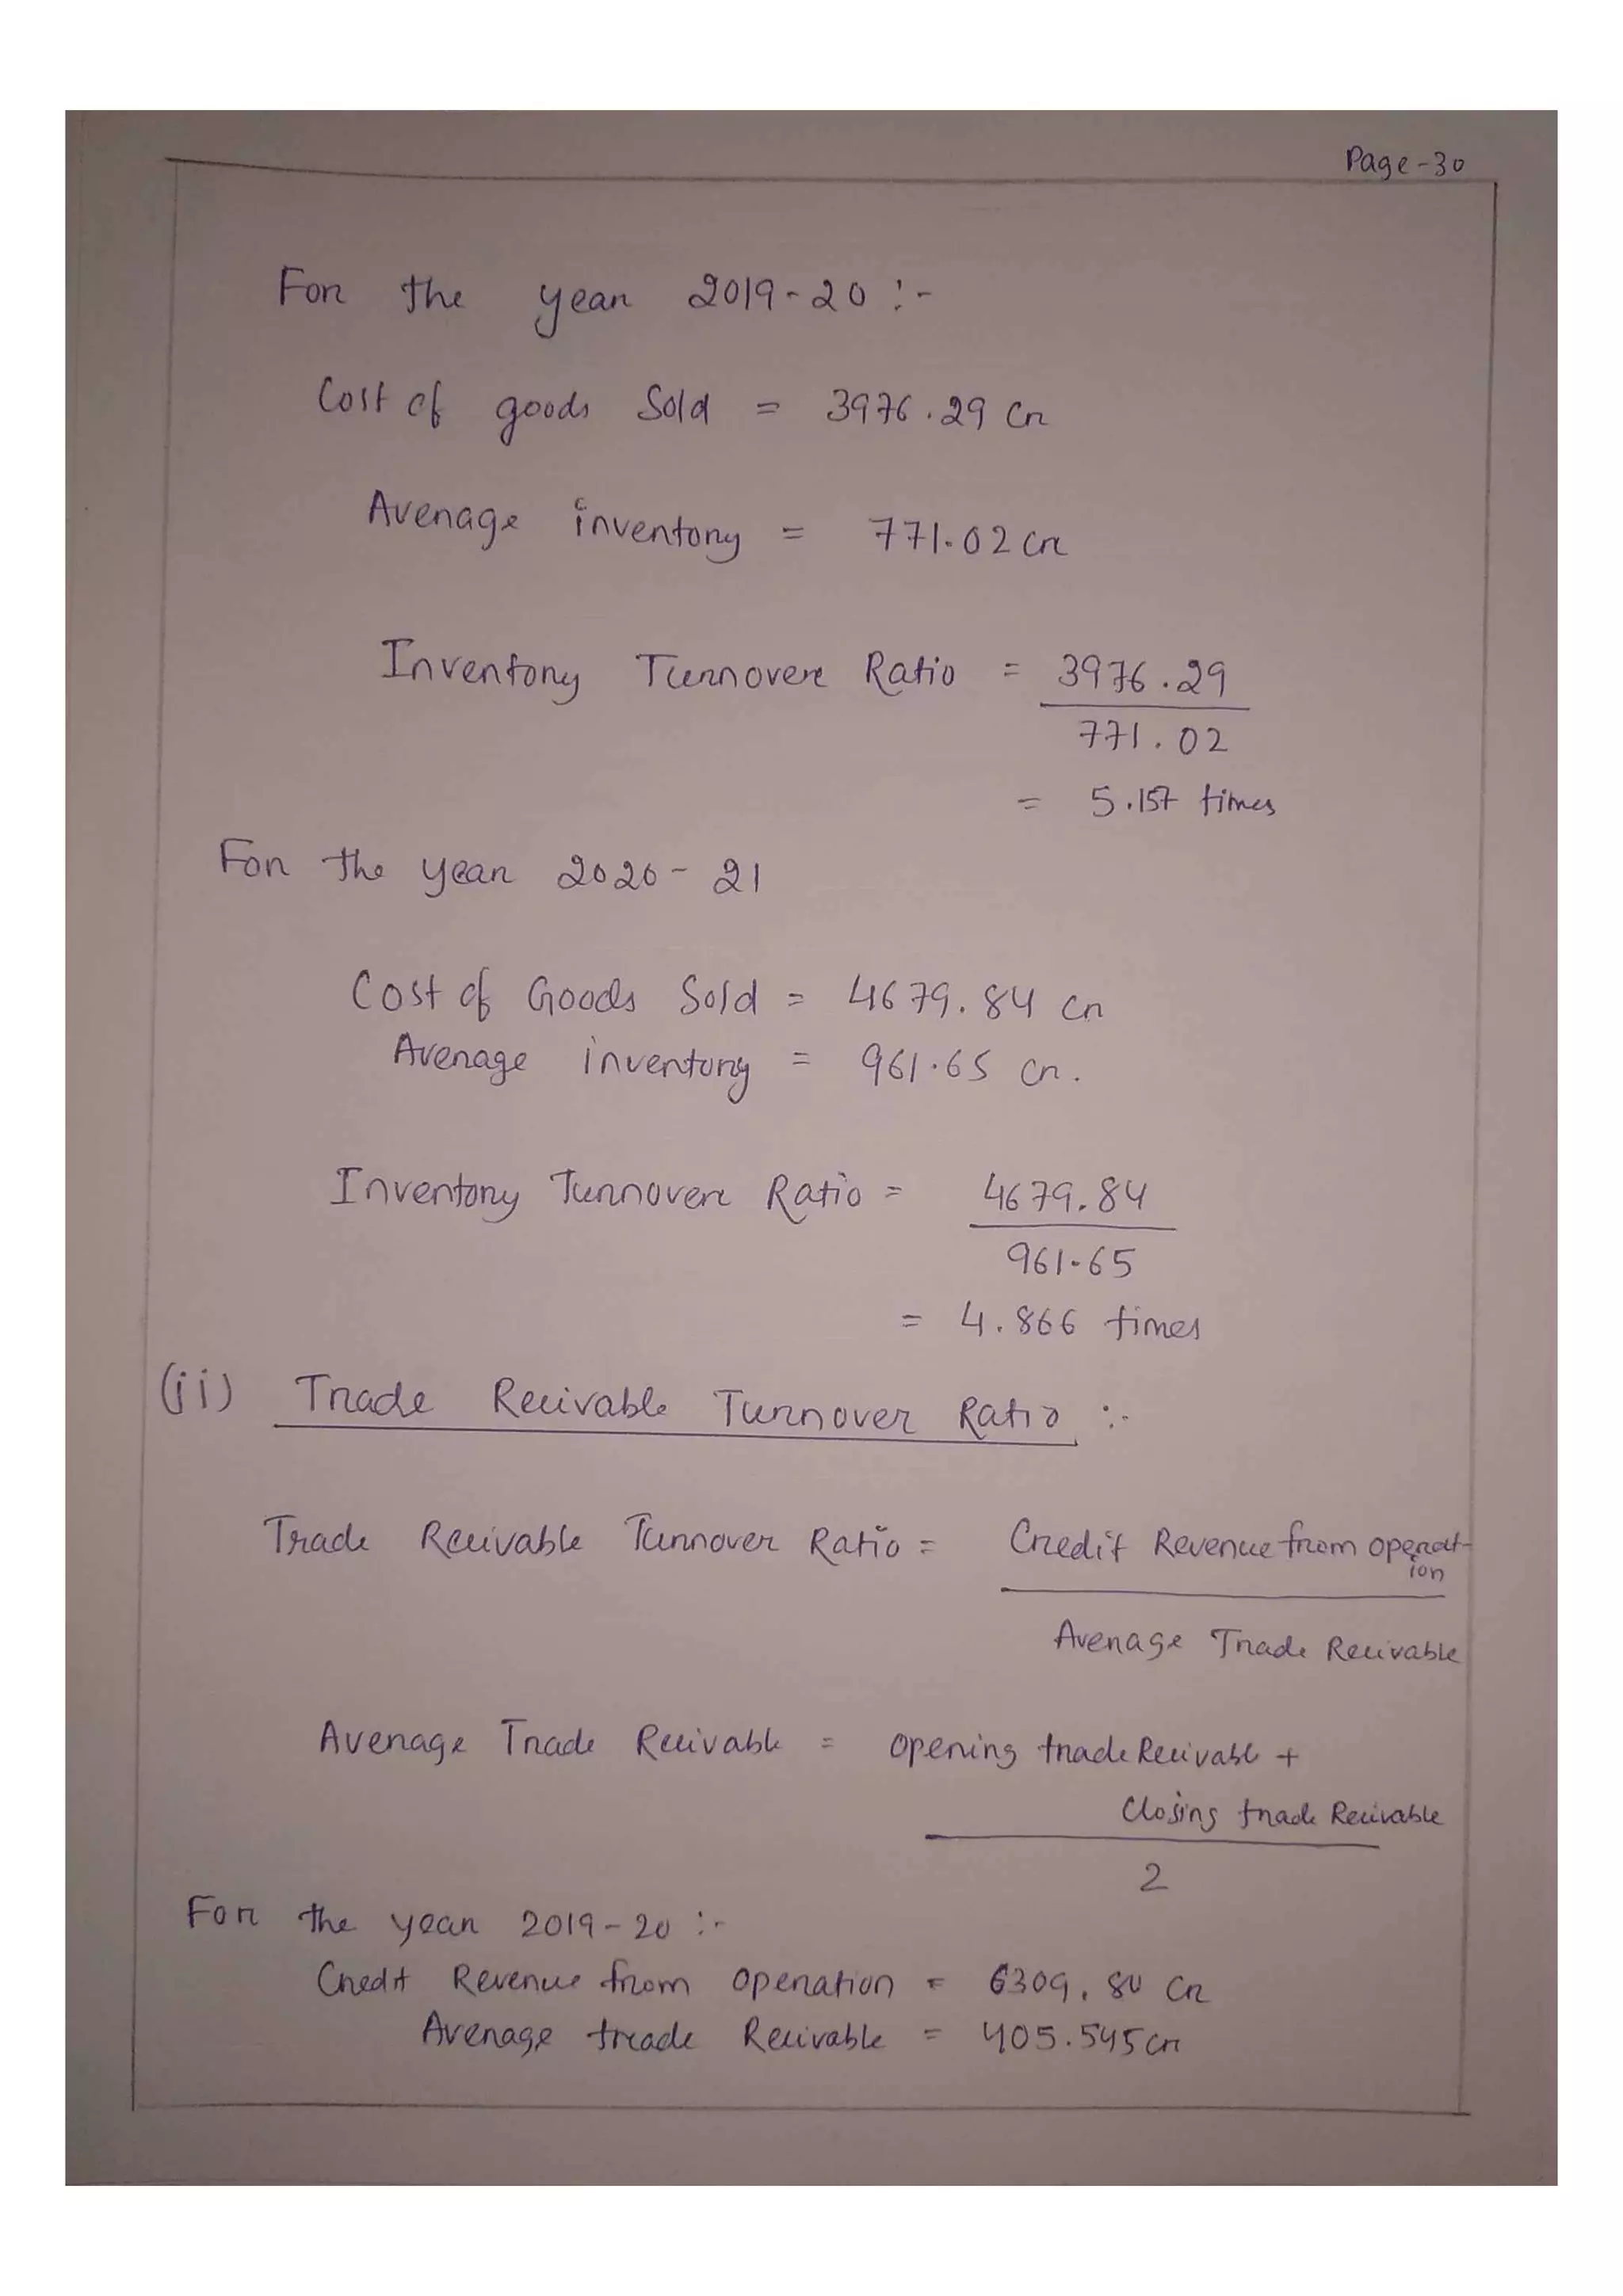 Page-30
For the year 2019-20 :-
Cost of goods Sold = 3976.29 Cr
Average inventory = 771.02 Cr
Inventory Turnover Ratio = 3976.29
771.02
= 5.157 times
For the year 2020-21
Cost of Goods Sold = 4679.84 Cr
Average inventory = 961.65 Cr.
Inventory Turnover Ratio = 4679.84
961.65
= 4.866 times
(ii) Trade Recivable Turnover Ratio :-
Trade Recivable Turnover Ratio = Credit Revenue from operat-
ion
Average Trade Recivable
Average Trade Recivable = opening trade Recivable +
Closing trade Recivable
2
For the year 2019-20 :-
Credit Revenue from operation = 6309.80 Cr
Average trade Recivable = 405.545 Cr